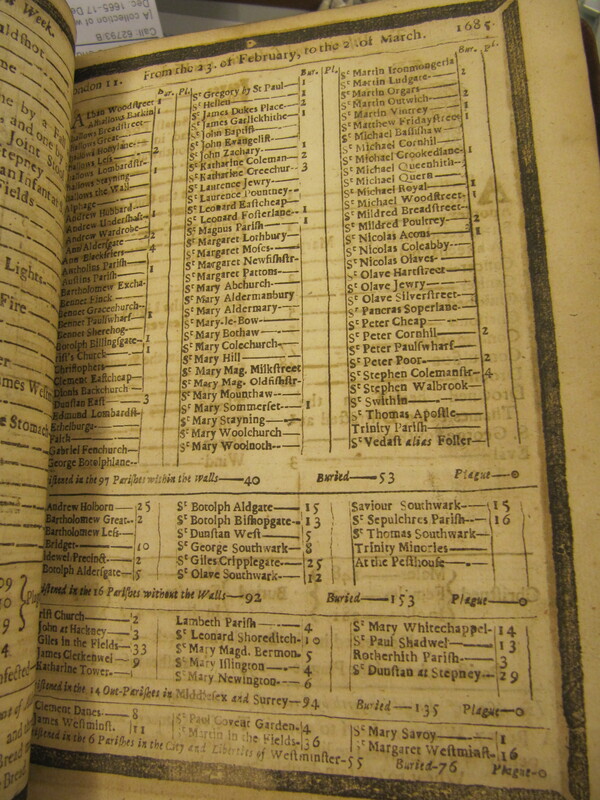 Call: 62793/B
[A collection of w
Dec. 1665-17 De
Week.
London 11. From the 23. of February, to the 2. of March. 1685.
Bar. Pl.
Alban Woodstreet 1
Alhallows Barkin 1
Breadstreet
Great
Honylane
Less 2
Lombardstr
Stayning 1
the Wall
Alphage
Andrew Hubbard
Andrew Undershaft 1
Andrew Wardrobe
Ann Aldersgate 2
Ann Blackfriers 4
Antholins Parish
Austins Parish 1
Bartholomew Excha-
Bennet Finck
Bennet Gracechurch
Bennet Paulswharf 1
Bennet Sherehog
Botolph Billingsgate 1
rist's Church 1
Christophers
Clement Eastcheap
Dionis Backchurch
Dunstan East 3
Edmund Lombardst-
Ethelburga
Faith
Gabriel Fenchurch
George Botolphlane
Bar. Pl.
Sᵗ Gregory by Sᵗ Paul 1
Sᵗ Hellen 1
Sᵗ James Dukes Place 2
Sᵗ James Garlickhithe 1
Sᵗ John Baptist
Sᵗ John Evangelist
Sᵗ John Zachary 1
Sᵗ Katharine Coleman 2
Sᵗ Katharine Creechur- 3
Sᵗ Laurence Jewry
Sᵗ Laurence Pountney
Sᵗ Leonard Eastcheap
Sᵗ Leonard Fosterlane
Sᵗ Magnus Parish 1
Sᵗ Margaret Lothbury
Sᵗ Margaret Moses
Sᵗ Margaret Newfishstr-
Sᵗ Margaret Pattons
Sᵗ Mary Abchurch
Sᵗ Mary Aldermanbury
Sᵗ Mary Aldermary
Sᵗ Mary-le-Bow
Sᵗ Mary Bothaw
Sᵗ Mary Colechurch
Sᵗ Mary Hill
Sᵗ Mary Mag. Milkstreet
Sᵗ Mary Mag. Oldfishstr-
Sᵗ Mary Mounthaw
Sᵗ Mary Sommerset 1
Sᵗ Mary Stayning
Sᵗ Mary Woolchurch
Sᵗ Mary Woolnoth
Bar. pl.
Sᵗ Martin Ironmongerla
Sᵗ Martin Ludgate 2
Sᵗ Martin Orgars
Sᵗ Martin Outwich 2
Sᵗ Martin Vintrey 1
Sᵗ Matthew Fridaystreet 1
Sᵗ Michael Bassishaw
Sᵗ Michael Cornhil
Sᵗ Michael Crookedlane 1
Sᵗ Michael Queenhith
Sᵗ Michael Quern
Sᵗ Michael Royal 1
Sᵗ Michael Woodstreet 1
Sᵗ Mildred Breadstreet
Sᵗ Mildred Poultrey 2
Sᵗ Nicolas Acons 1
Sᵗ Nicolas Coleabby
Sᵗ Nicolas Olaves
Sᵗ Olave Hartstreet
Sᵗ Olave Jewry
Sᵗ Olave Silverstreet
Sᵗ Pancras Soperlane
Sᵗ Peter Cheap
Sᵗ Peter Cornhil 2
Sᵗ Peter Paulswharf
Sᵗ Peter Poor 2
Sᵗ Stephen Colemanstr 4
Sᵗ Stephen Walbrook
Sᵗ Swithin
Sᵗ Thomas Apostle
Trinity Parish
Sᵗ Vedast alias Foster
istened in the 97 Parishes within the Walls—40 Buried—53 Plague—0
Andrew Holborn 25
Bartholomew Great 2
Bartholomew Less
Bridget 10
Bridewel Precinct 2
Botolph Aldersgate 5
Sᵗ Botolph Aldgate 15
Sᵗ Botolph Bishopsgate 13
Sᵗ Dunstan West 5
Sᵗ George Southwark 8
Sᵗ Giles Cripplegate 25
Sᵗ Olave Southwark 12
Saviour Southwark 15
Sᵗ Sepulchres Parish 16
Sᵗ Thomas Southwark
Trinity Minories
At the Pesthouse
istened in the 16 Parishes without the Walls—92 Buried—153 Plague—0
rist Church 2
John at Hackney 3
Giles in the Fields 33
James Clerkenwel 9
Katharine Tower 1
Lambeth Parish 4
Sᵗ Leonard Shoreditch 10
Sᵗ Mary Magd. Bermon. 5
Sᵗ Mary Islington 4
Sᵗ Mary Newington 6
Sᵗ Mary Whitechappel 14
Sᵗ Paul Shadwel 13
Rotherhith Parish 3
Sᵗ Dunstan at Stepney 29
istened in the 14 Out-Parishes in Middlesex and Surrey—94 Buried—135 Plague—0
Clement Danes 8
James Westminst. 11
Sᵗ Paul Covent Garden 4
Sᵗ Martin in the Fields 36
Sᵗ Mary Savoy 1
Sᵗ Margaret Westminst. 16
istened in the 6 Parishes in the City and Liberties of Westminster-55 Buried-76 Plague-0